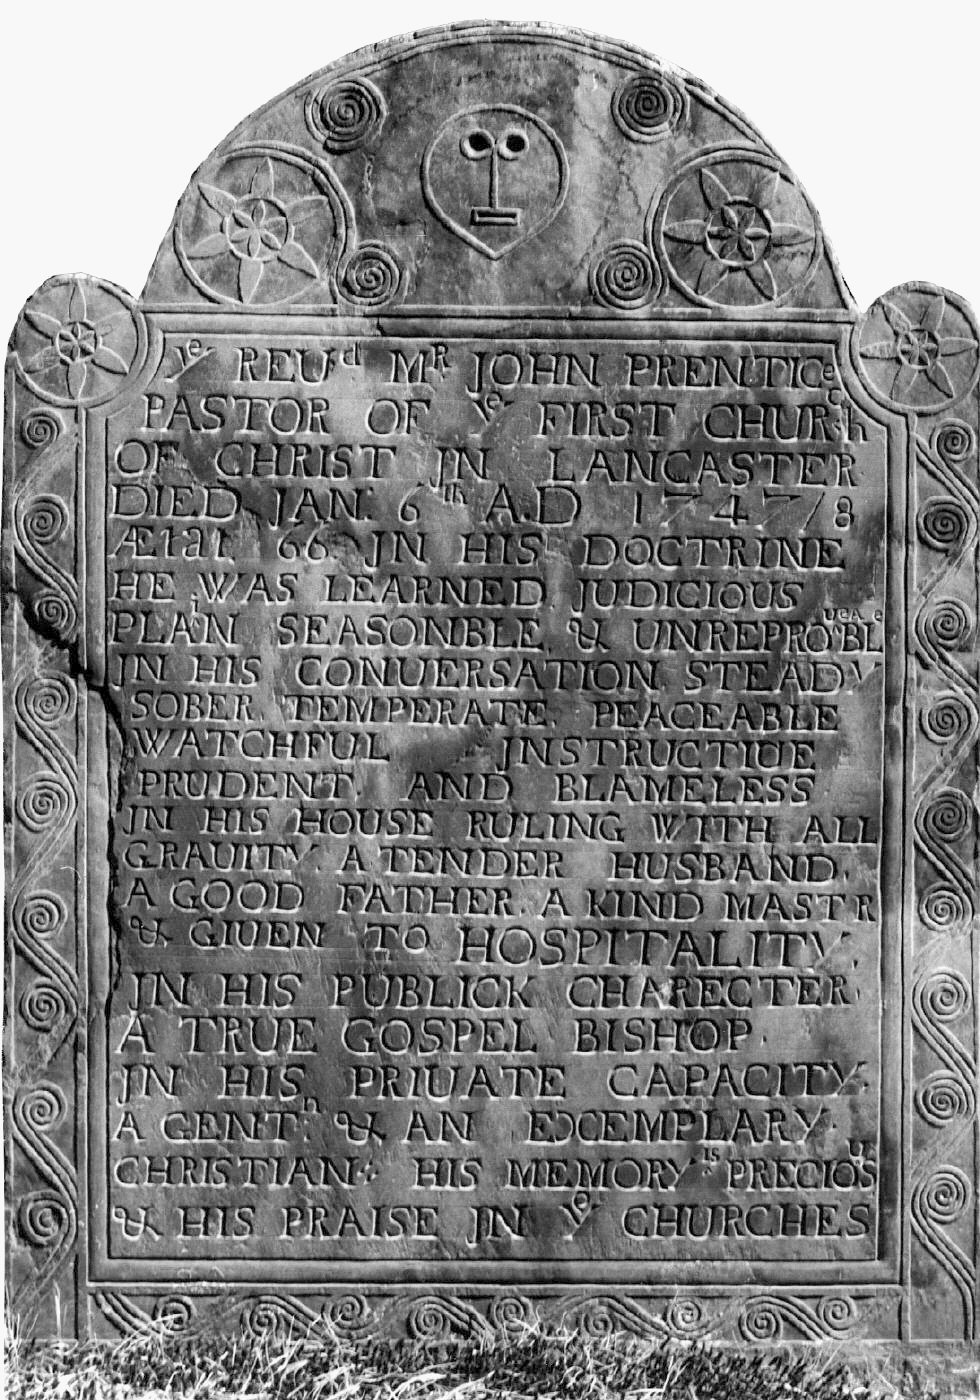 yᵉ REUᵈ Mᴿ JOHN PRENTICe
PASTOR OF yᵉ FIRST CHURᶜh
OF CHRIST JN LANCASTER
DIED JAN. 6ᵗʰ A.D 1747/8
Ætat 66. JN HIS DOCTRINE
HE WAS LEARNED. JUDICIOUS
PLAⁱN SEASONBLE. & UNREPROUEABLe
JN HIS CONUERSATION. STEADY
SOBER. TEMPERATE. PEACEABLE
WATCHFUL JNSTRUCTIUE
PRUDENT. AND BLAMELESS
JN HIS HOUSE RULING WITH ALL
GRAUITY. A TENDER HUSBAND.
A GOOD FATHER. A KIND MASTR
& GIUEN TO HOSPITALITY.
JN HIS PUBLICK CHARECTER
A TRUE GOSPEL BISHOP.
JN HIS PRIUATE CAPACITY.
A GENTⁿ. & AN EXCEMPLARY.
CHRISTIAN: HIS MEMORY ᶦˢ PRECIOᵘS
& HIS PRAISE JN yᵉ CHURCHES